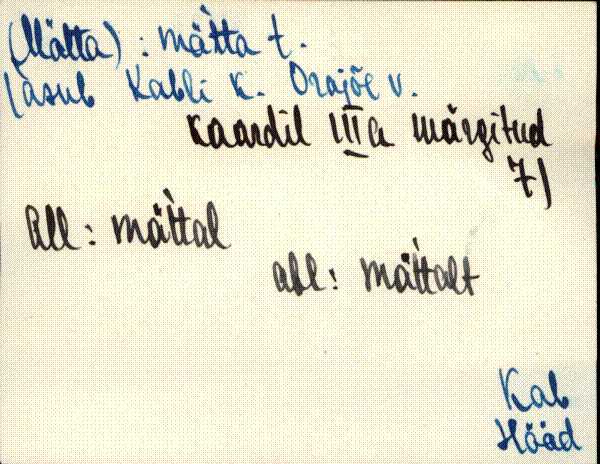 (Mätta) : mä̀tta t.
(asub Kabli k. Orajõe v.
kaardil IIIa märgitud
71
All : mät̀tal
abl : mät̀talt
Kab
Hääd